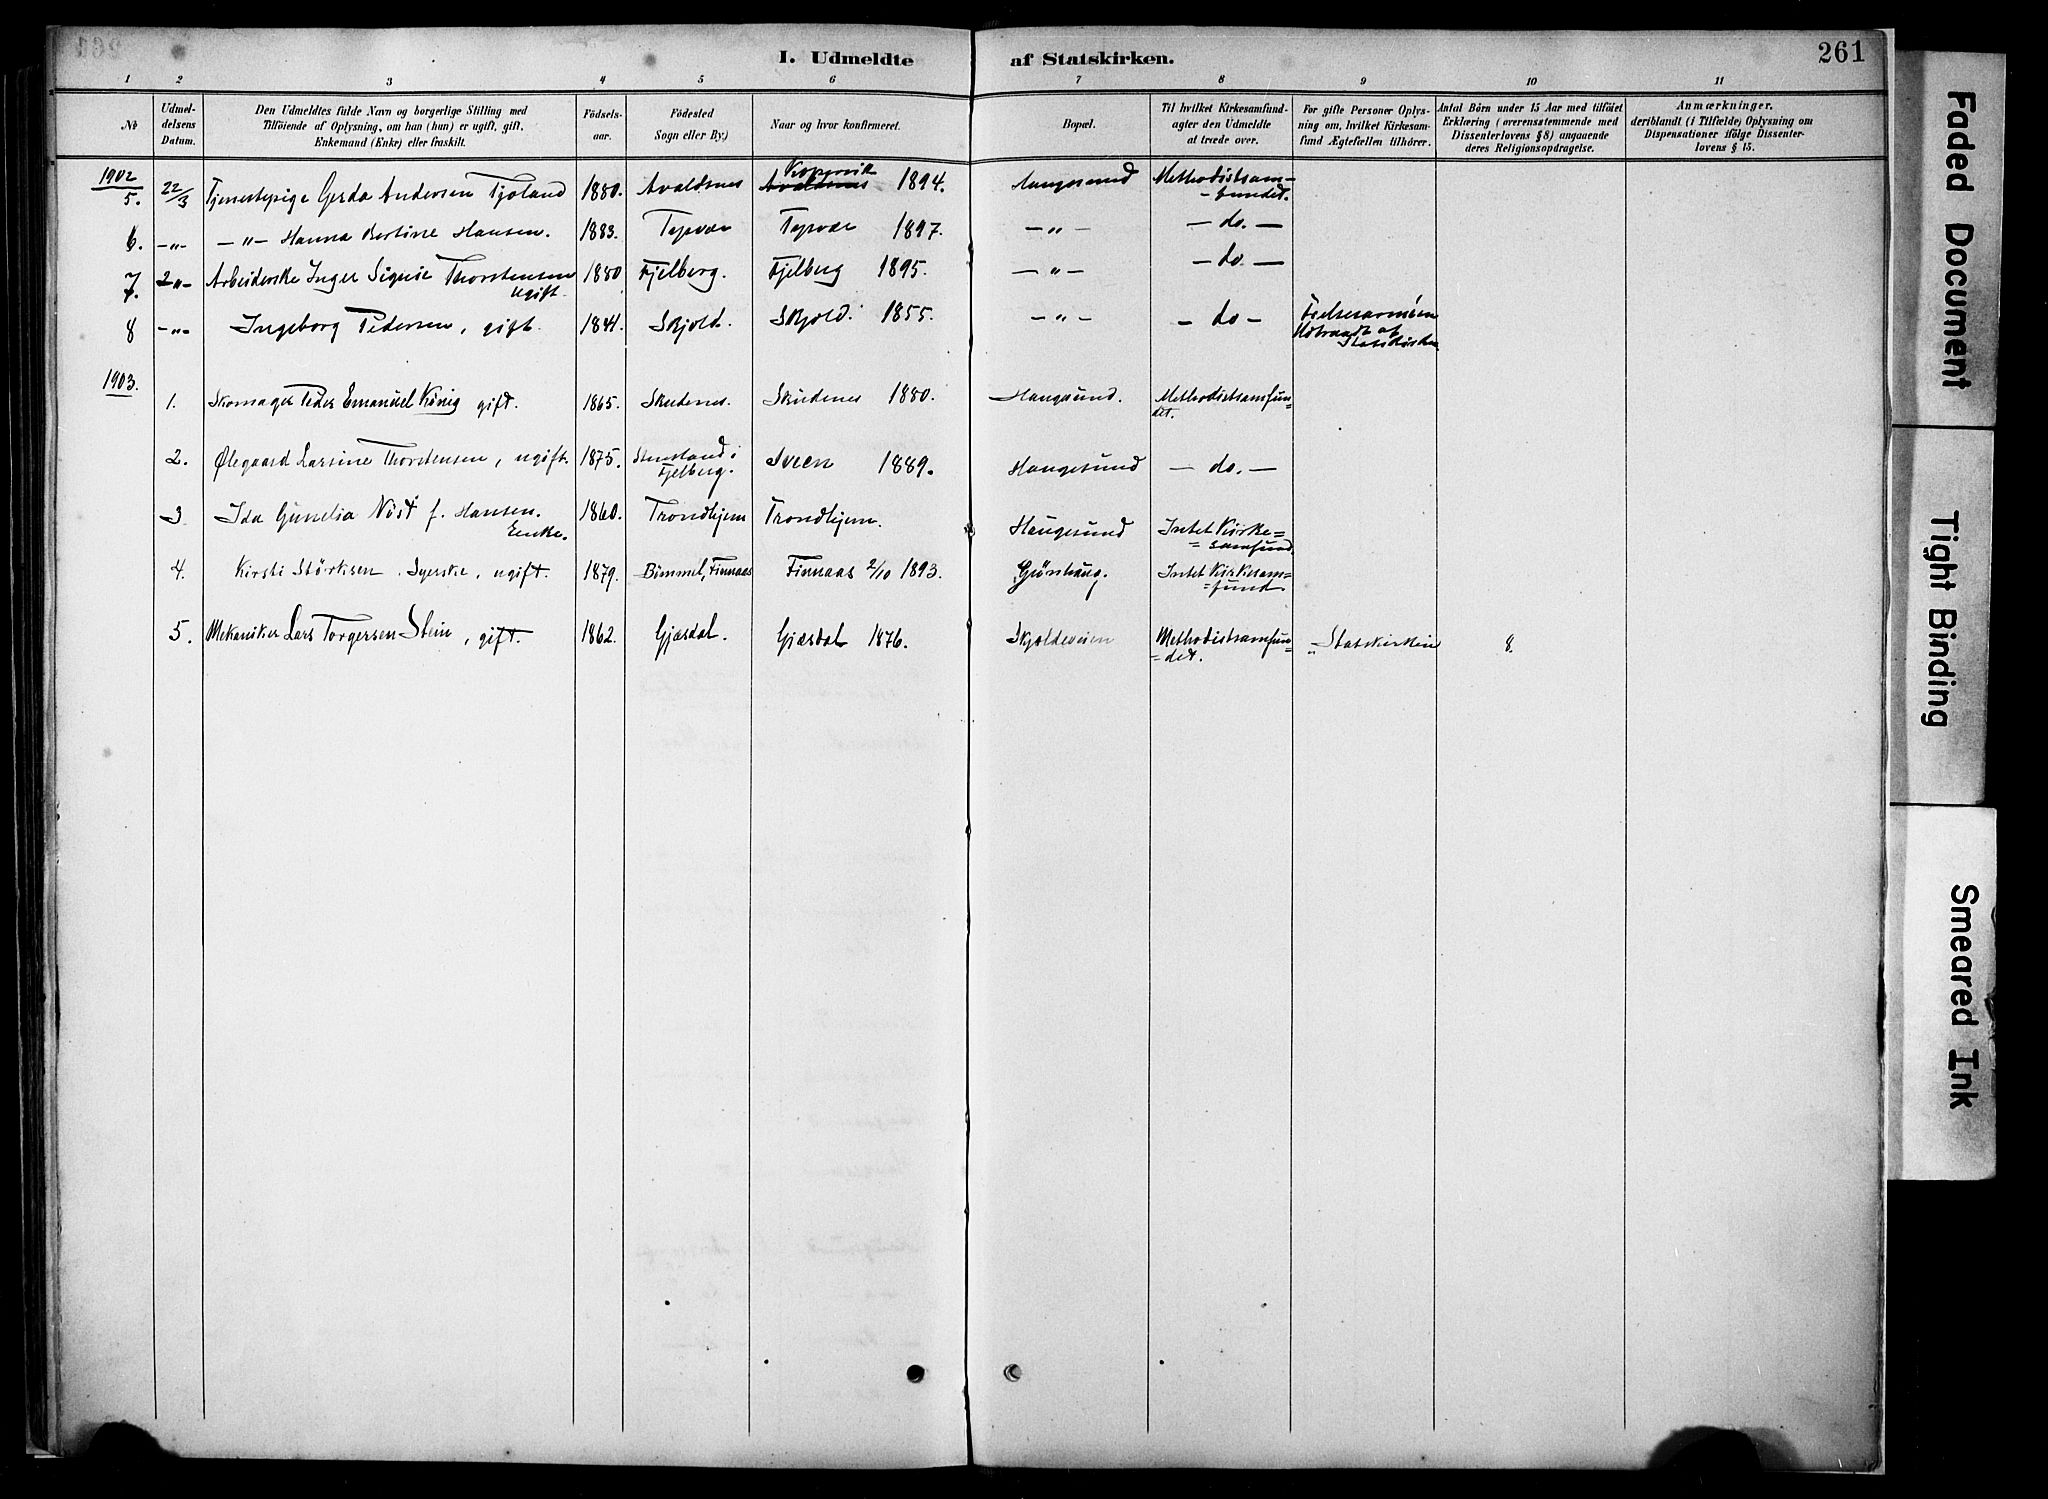 I. Udmeldte af Statskirken.
261
1 2 3 4 5 6 7 8 9 10 11
№
Udmel-
delsens
Datum.
Den Udmeldtes fulde Navn og borgerlige Stilling med
Tilföiende af Oplysning, om han (hun) er ugift, gift,
Enkemand (Enke) eller fraskilt.
Födsels-
aar.
Födested
Sogn eller By.)
Naar og hvor konfirmeret.
Bopæl.
Til hvilket Kirkesamfund-
agter den Udmeldte
at træde over.
For gifte Personer Oplys-
ning om, hvilket Kirkesam-
fund Ægtefællen tilhörer.
Antal Börn under 15 Aar med tilföiet
Erklæring (overensstemmende med
Dissenterlovens § 8) angaaende
deres Religionsopdragelse.
Anmærkninger,
deriblandt (i Tilfælde) Oplysning om
Dispensationer ifölge Dissenter-
lovens § 15.
1902
Kopervik
5. 22/3 Tjenestepige Gerda Andersen Tjoland 1880. Avaldsnes Avaldsnes 1894. Haugesund Methodistsam-
- fundet.
6. -"- -"- Hanna Bertine Hansen. 1883. Tysvær Tysvær 1897. -"- - do. -
7. 2"- Arbeiderske Inger Signie Thorstensen 1880 Fjelberg. Fjelberg 1895. -"- - do. -
ugift.
8 -"- Ingeborg Pedersen, gift. 1841. Skjold. Skjold. 1855. -"- - do - Frelsesarméen
Udtraadt af
Statskirken.
1903.
1. Skomager Peder Emanuel König gift. 1865. Skudenes. Skudenes 1880. Haugesund. Methodistsamfun=
det.
2. Ølegaard Larsine Thorstensen, ugift. 1875. Stensland i Sveen 1889. Haugesund - do. -
Fjelberg.
3 Ida Gunelia Nøst f. Hansen. 1860. Trondhjem Trondhjem. Haugesund Intet Kirke=
Enke. = samfund.
4. Kirsti Størksen, Syerske, ugift. 1879. Bømmel, Finnaas Finnaas 2/10 1893. Grønhaug. Intet Kirkesam=
= fund.
5. Mekaniker Lars Torgersen Stein, gift. 1862. Gjæsdal. Gjæsdal 1876. Skjoldeveien Methodistsamfun= Statskirken 8.
= det.
Faded Document
Tight Binding
Smeared Ink